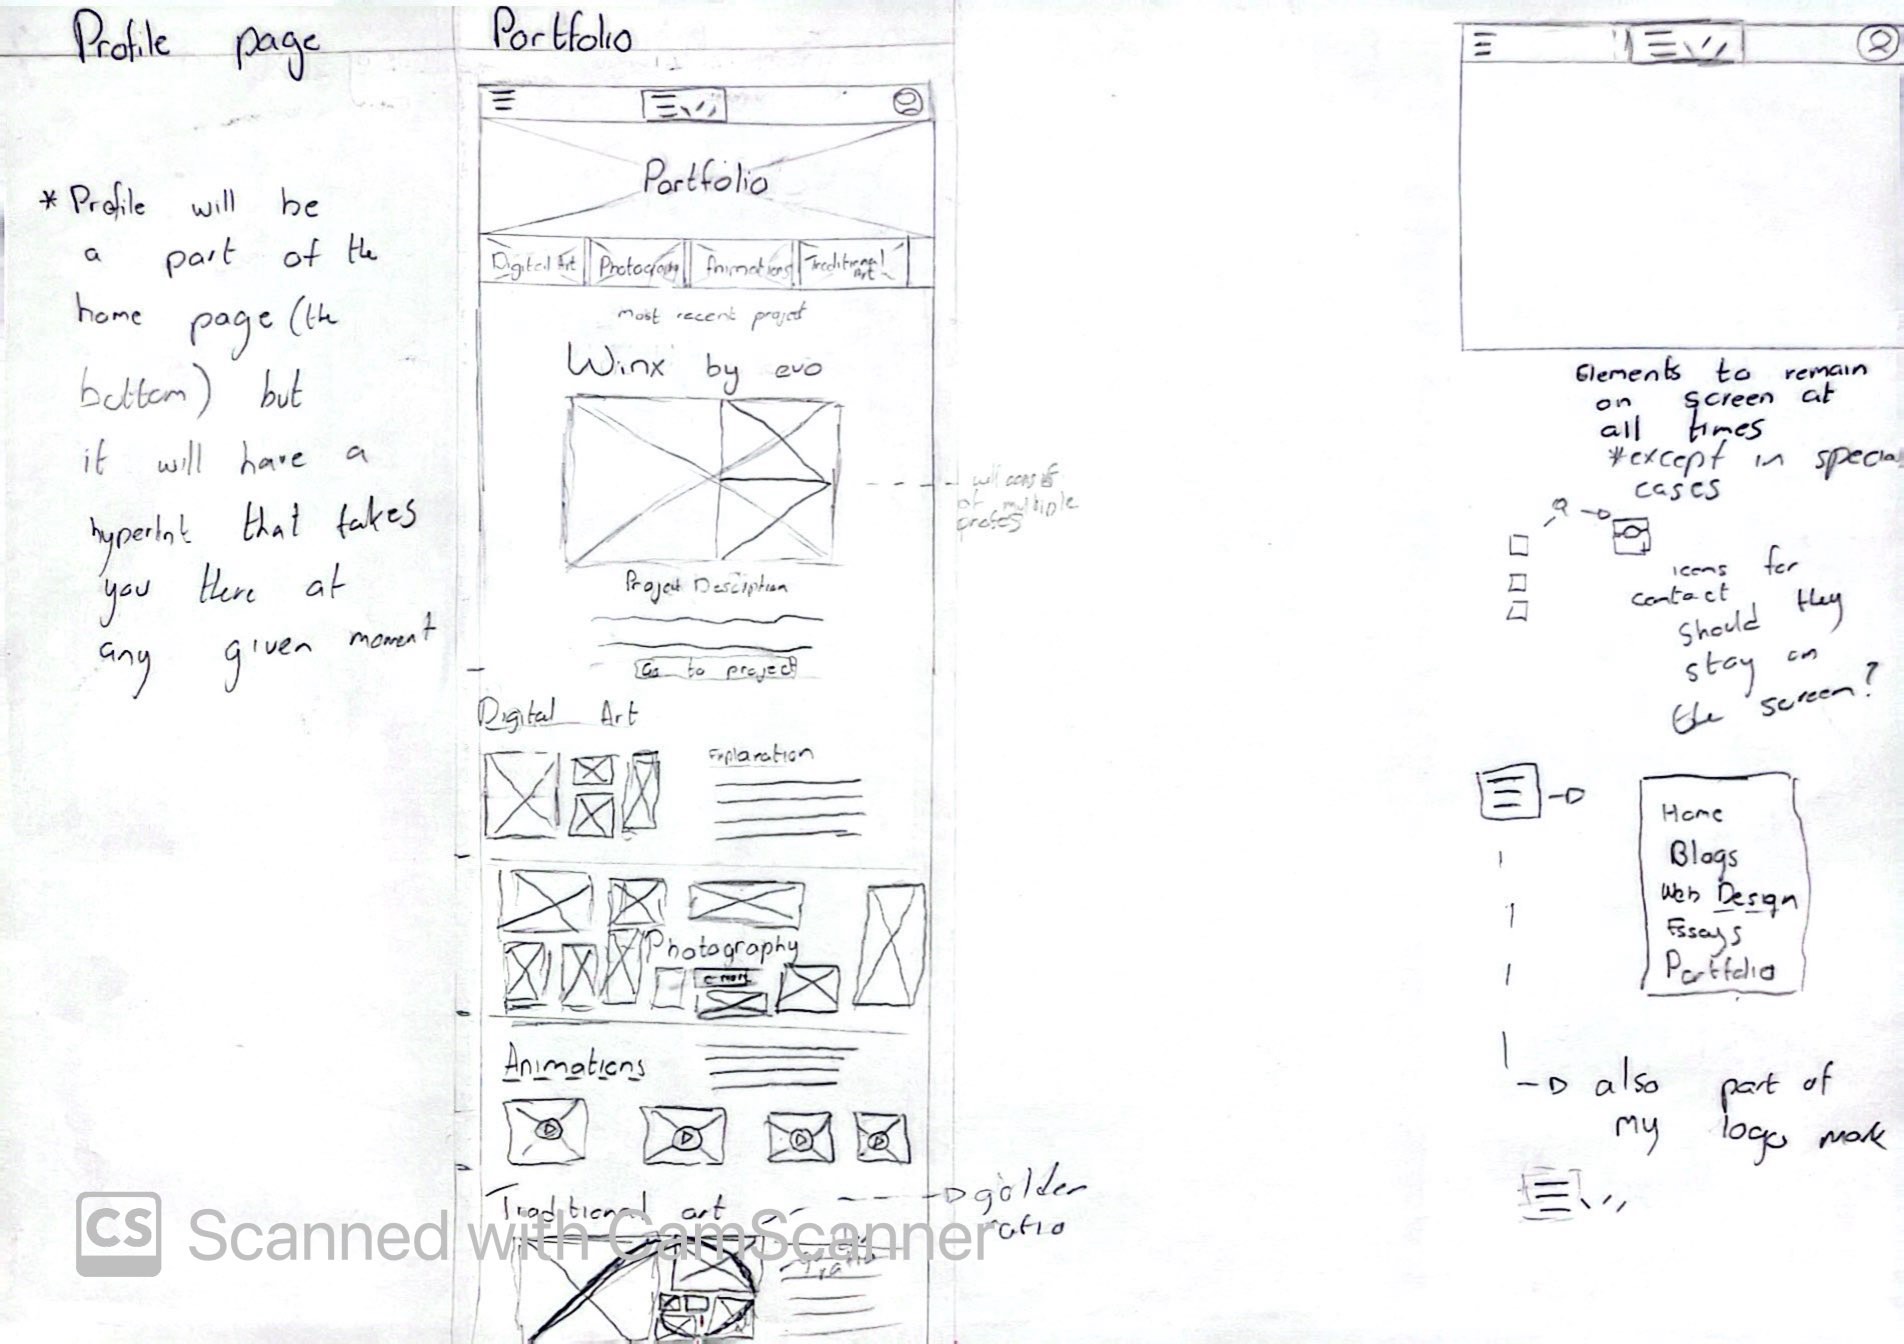 Profile page
* Profile will be
a part of the
home page (the
bottom) but
it will have a
hyperlnt that takes
you there at
any given moment
Portfolio
Portfolio
Digital Art
Photography
Animations
Traditional
Art
most recent project
Winx by evo
of multiple
Project Description
Go to project
Digital Art
Explanation
Photography
Animations
Traditional art
golden
ratio
Elements to remain
on screen at
all times
*except in special
cases
icons for
contact
should they
stay on
the screen?
Home
Blogs
Web Design
Essays
Portfolio
also part of
my logo mark
CS Scanned with CamScanner